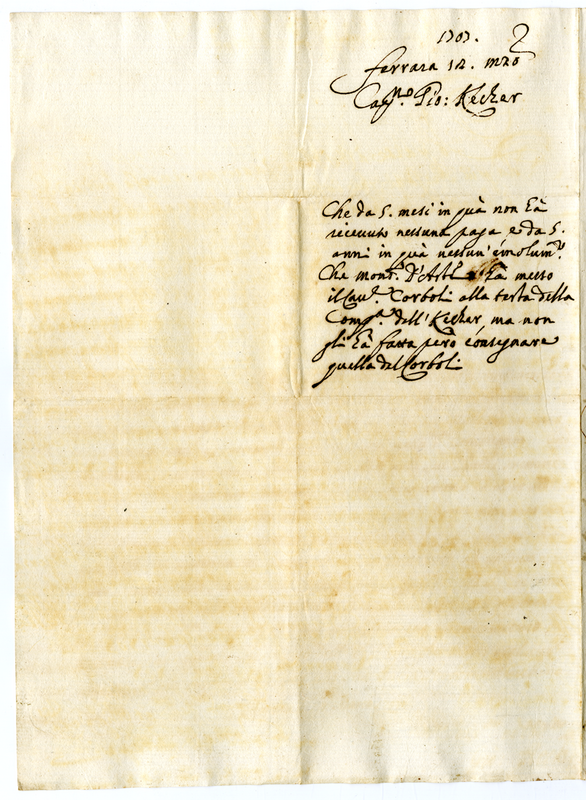 1707. 2
Ferrara 12. mzo
Capno. Gio: Kecker
Che da 5. mesi in quà non hà
riceuuto nessuna paga e da 5.
anni in quà nessun' émolumto.
Che monsr. D'Asti hà messo
il Caur. Corboli alla testa della
Compa. dell' Kecker, ma non
gli hà fatta però consignare
quella del Corboli